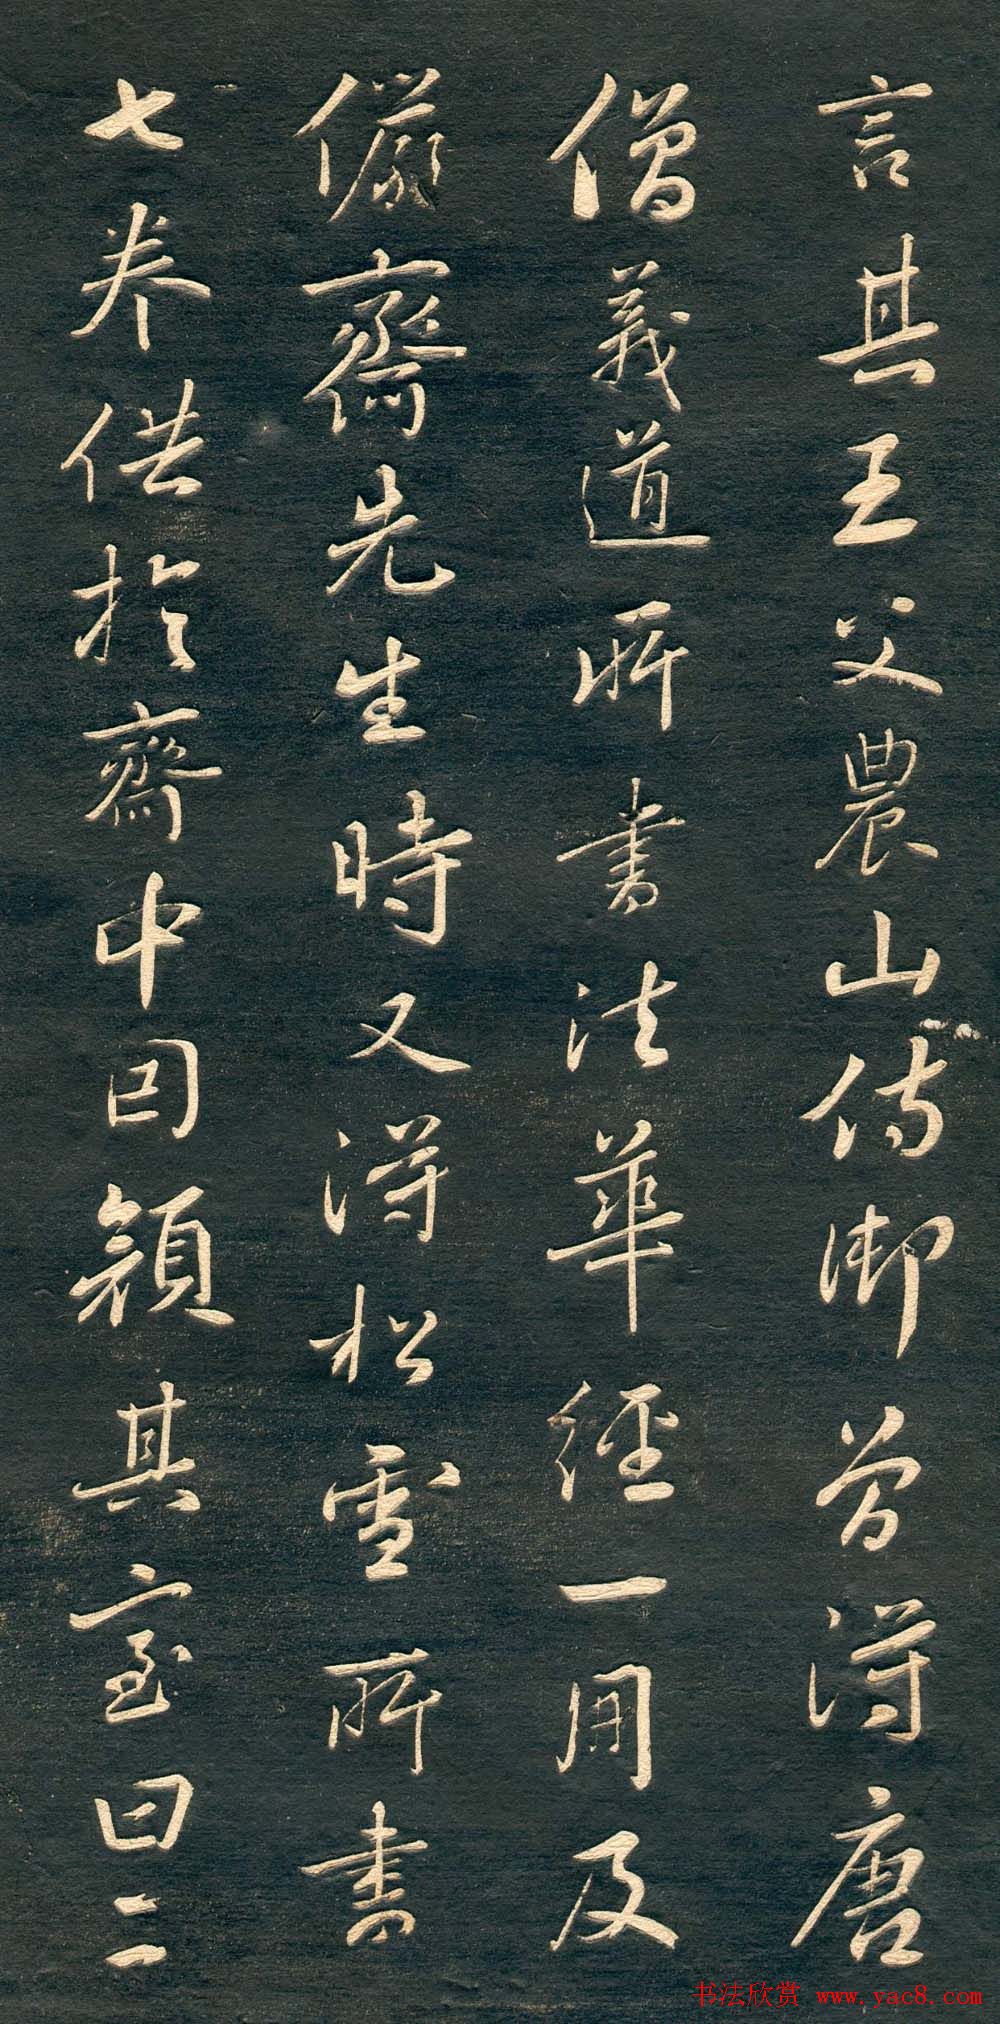 言其王父農山侍御曾得唐
僧義道所書法華經一冊及
儼齋先生時又得松雪所書
七卷供於齋中因顏其室曰二
书法欣赏 www.yac8.com